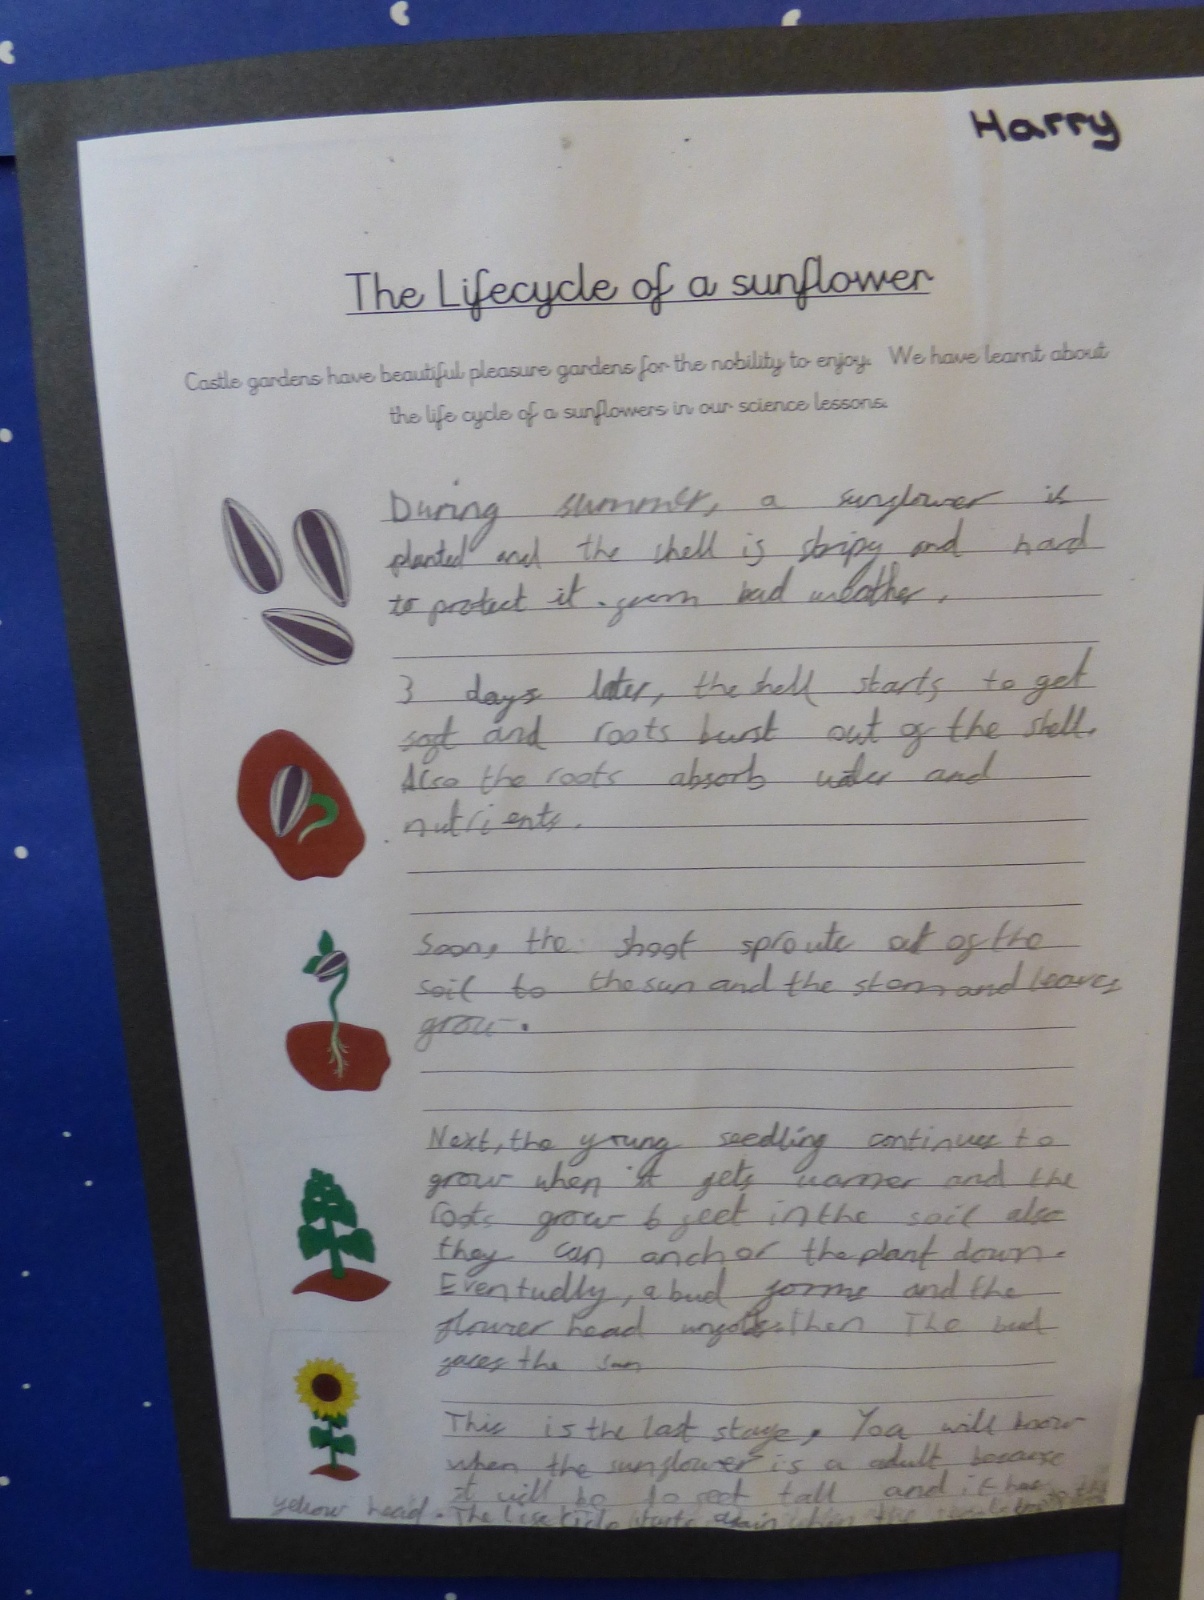 Harry
The Lifecycle of a sunflower
Castle gardens have beautiful pleasure gardens for the nobility to enjoy. We have learnt about
the life cycle of a sunflowers in our science lessons.
During summer, a sunflower is
planted and the shell is stripy and hard
to protect it from bad weather.
3 days later, the shell starts to get
soft and roots burst out of the shell.
Also the roots absorb water and
nutrients.
Soon, the shoot sproute out of the
soil to the sun and the stem and leaves
grow.
Next, the young seedling continues to
grow when it gets warmer and the
roots grow 6 feet in the soil also
they can anchor the plant down.
Eventually, a bud forms and the
flower head unfolds. Then The bud
faces the sun
This is the last stage, You will know
when the sunflower is a adult because
it will be 10 feet tall and it has
yellow head. The starts again when the